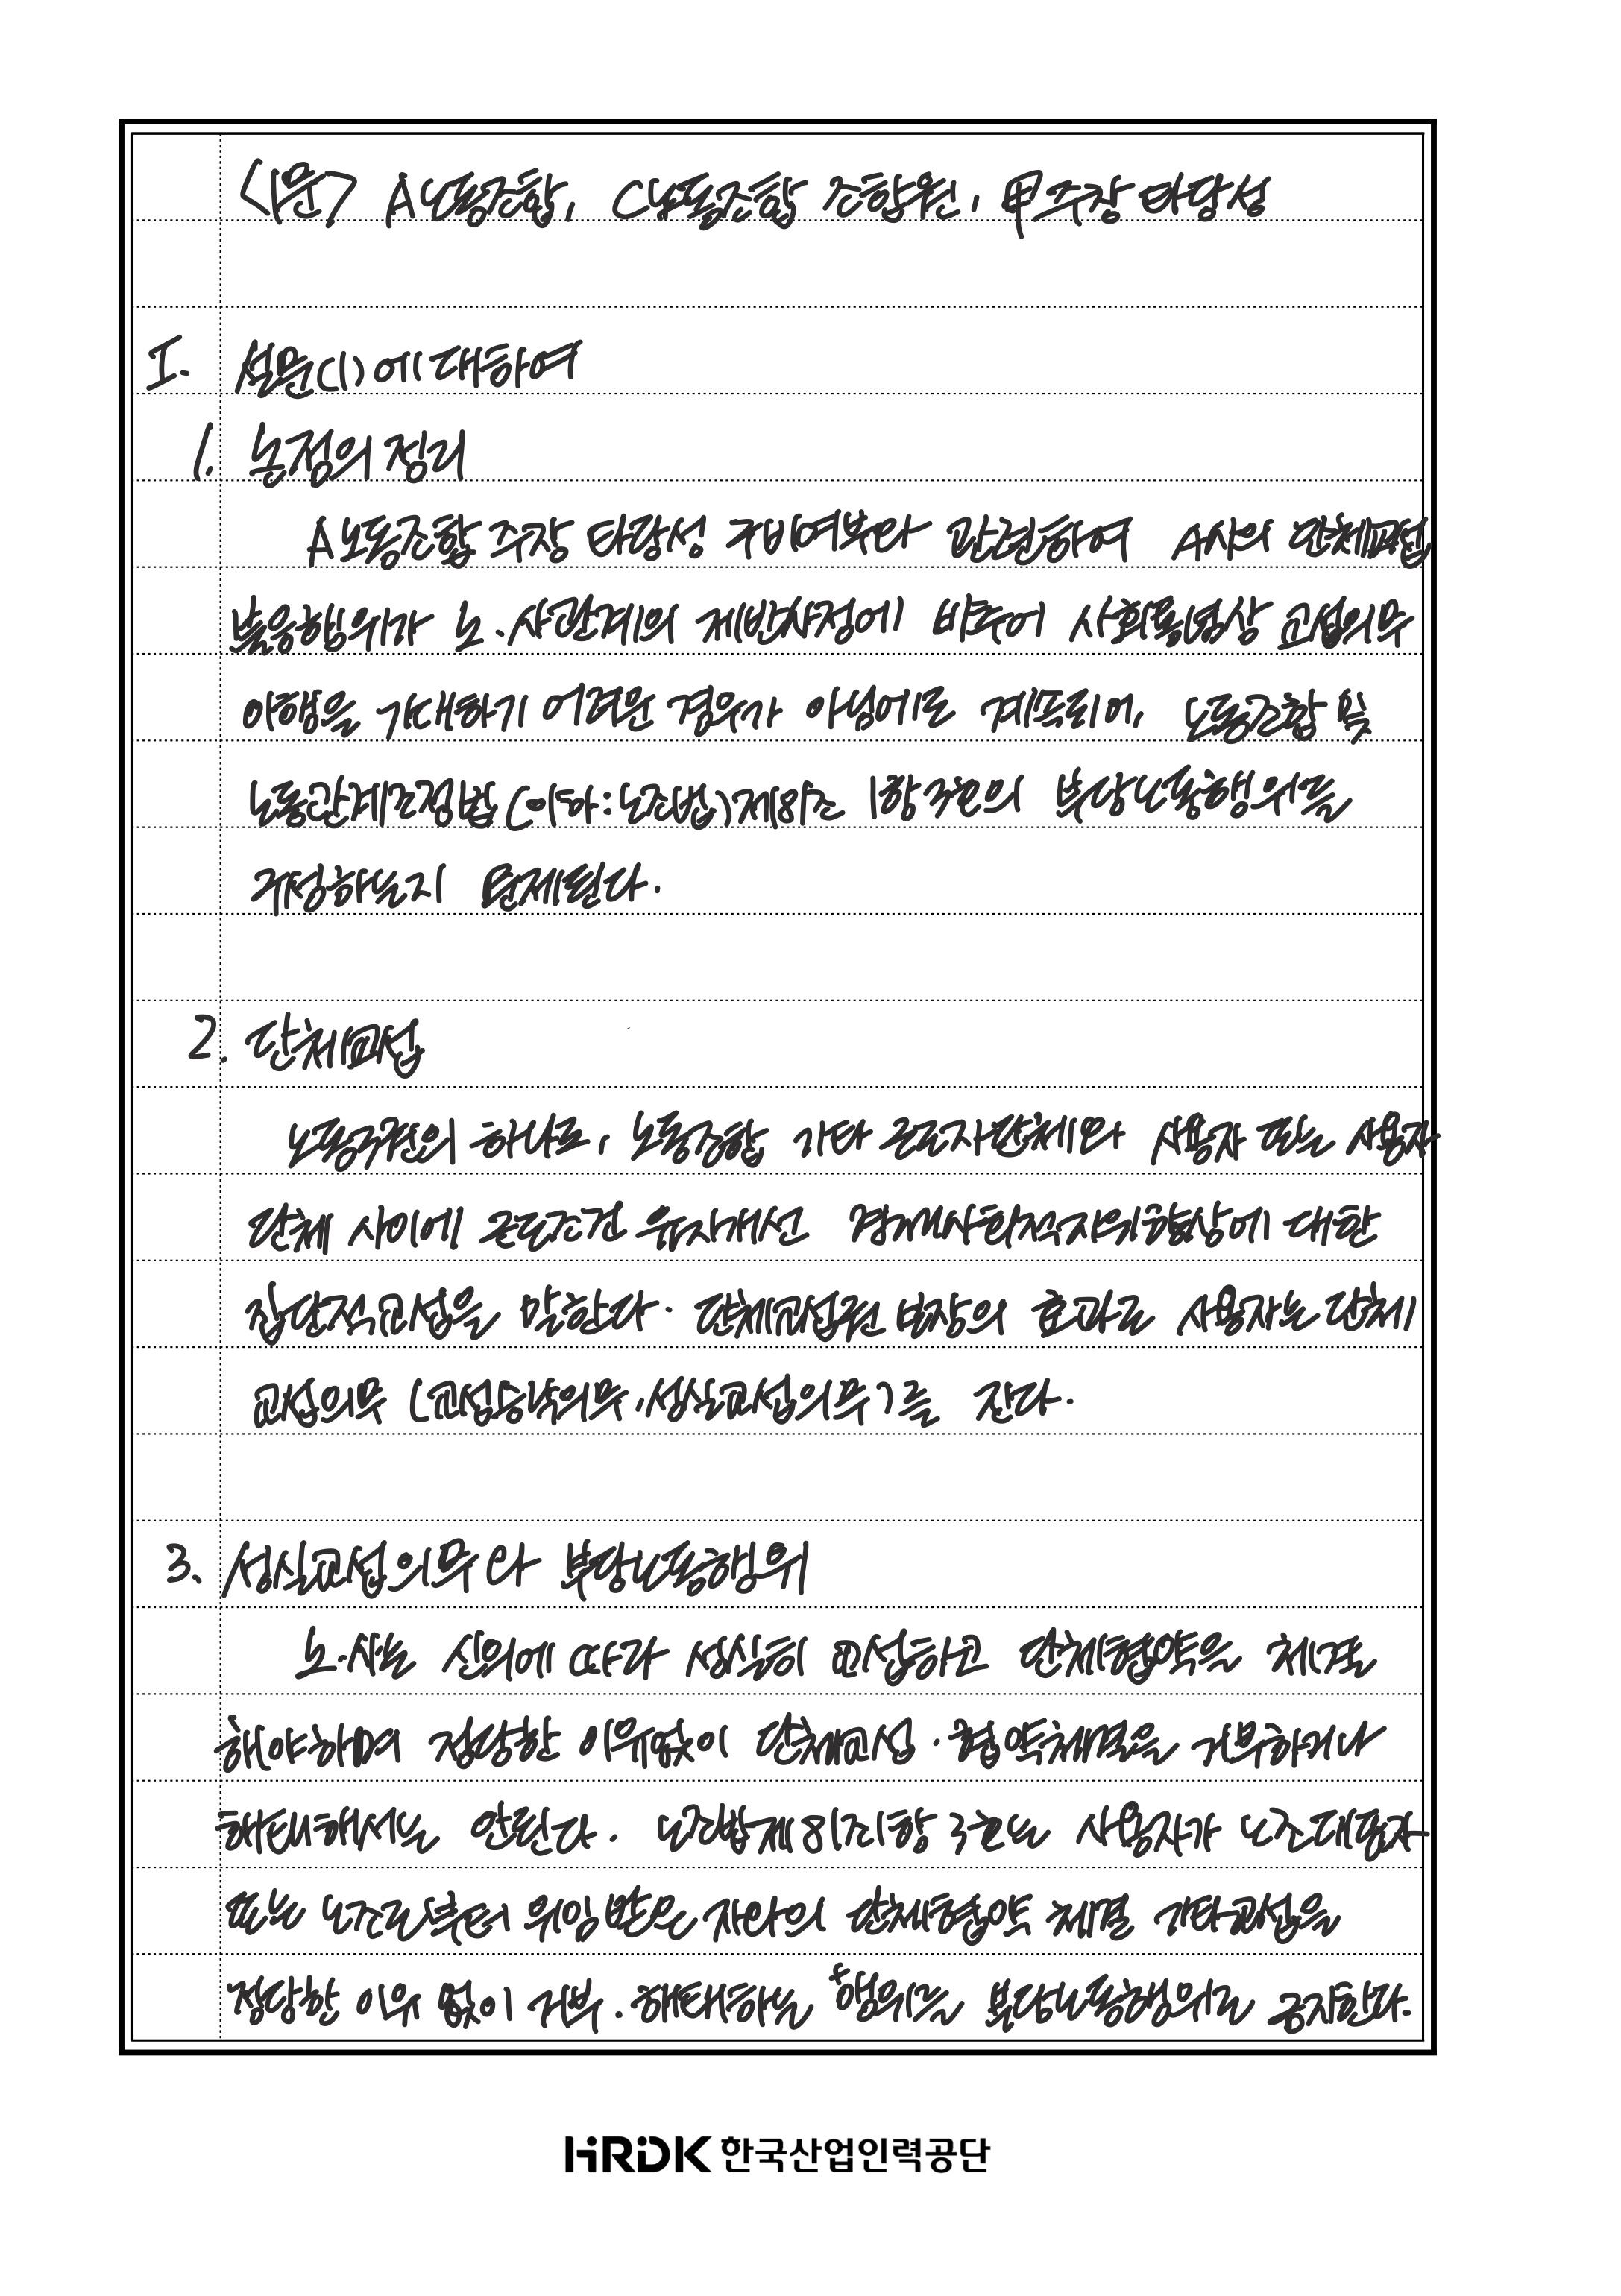 <문> A노동조합, C노동조합 조합원, 甲주장 타당성
I. 설문(1)에 대하여
1. 논점의 정리
A노동조합 주장 타당성 구비여부와 관련하여 A사의 단체교섭
불응행위가 노·사관계의 제반사정에 비추어 사회통념상 교섭의무
이행을 기대하기 어려운 경우가 아님에도 계속되어, 노동조합 및
노동관계조정법(이하:노조법)제81조 1항 3호의 부당노동행위를
구성하는지 문제된다.
2. 단체교섭
노동3권의 하나로, 노동조합 기타 근로자단체와 사용자 또는 사용자
단체 사이에 근로조건 유지개선 경제사회적지위향상에 대한
집단적교섭을 말한다. 단체교섭권 보장의 효과로 사용자는 단체
교섭의무 (교섭응낙의무,성실교섭의무)를 진다.
3. 성실교섭의무와 부당노동행위
노·사는 신의에 따라 성실히 교섭하고 단체협약을 체결
해야하며 정당한 이유없이 단체교섭·협약체결을 거부하거나
해태해서는 안된다. 노조법제81조1항 3호는 사용자가 노조대표자
또는 노조로부터 위임 받은 자와의 단체협약 체결 기타교섭을
정당한 이유 없이 거부·해태하는 행위를 부당노동행위로 금지한다.
HRDK 한국산업인력공단